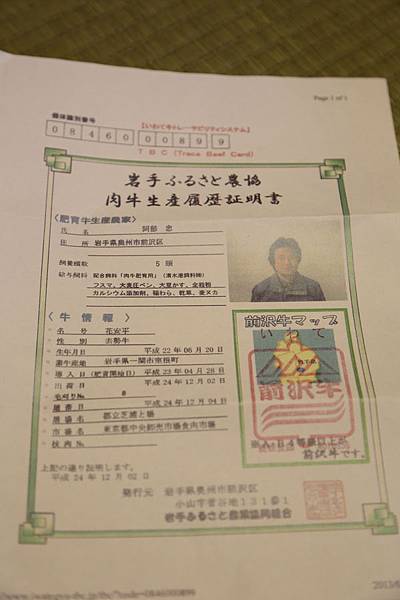 Page 1 of 1
個体識別番号
【いわて牛トレーサビリティシステム】
0846000899
TBC (Trace Beef Card)
岩手ふるさと農協
肉牛生産履歴証明書
〈肥育牛生産農家〉
氏 名 阿部 忠
住 所 岩手県奥州市前沢区
飼養頭数 5 頭
給与飼料 配合飼料「肉牛肥育用」(清水港飼料㈱)
フスマ、大麦圧ペン、大豆かす、全粒粉
カルシウム添加剤、稲わら、乾草、麦ヌカ
〈牛 情 報〉
名 号 花安平
性 別 去勢牛
生年月日 平成 22年 06月 20日
素牛産地 岩手県一関市室根町
導入日(肥育開始日) 平成 23年 04月 28日
出荷日 平成 24年 12月 02日
毛刈りNo. 8
屠畜日 平成 24年 12月 04日
屠場名 都立芝浦と場
市場名 東京都中央卸売市場食肉市場
枝肉No.
前沢牛マップ
いわて
前沢牛
※A・B 4等級以上が
前沢牛です。
上記の通り証明します。
平成 24年 12月 02日
発行元 岩手県奥州市前沢区
小山字菅谷地131番1
岩手ふるさと農業協同組合